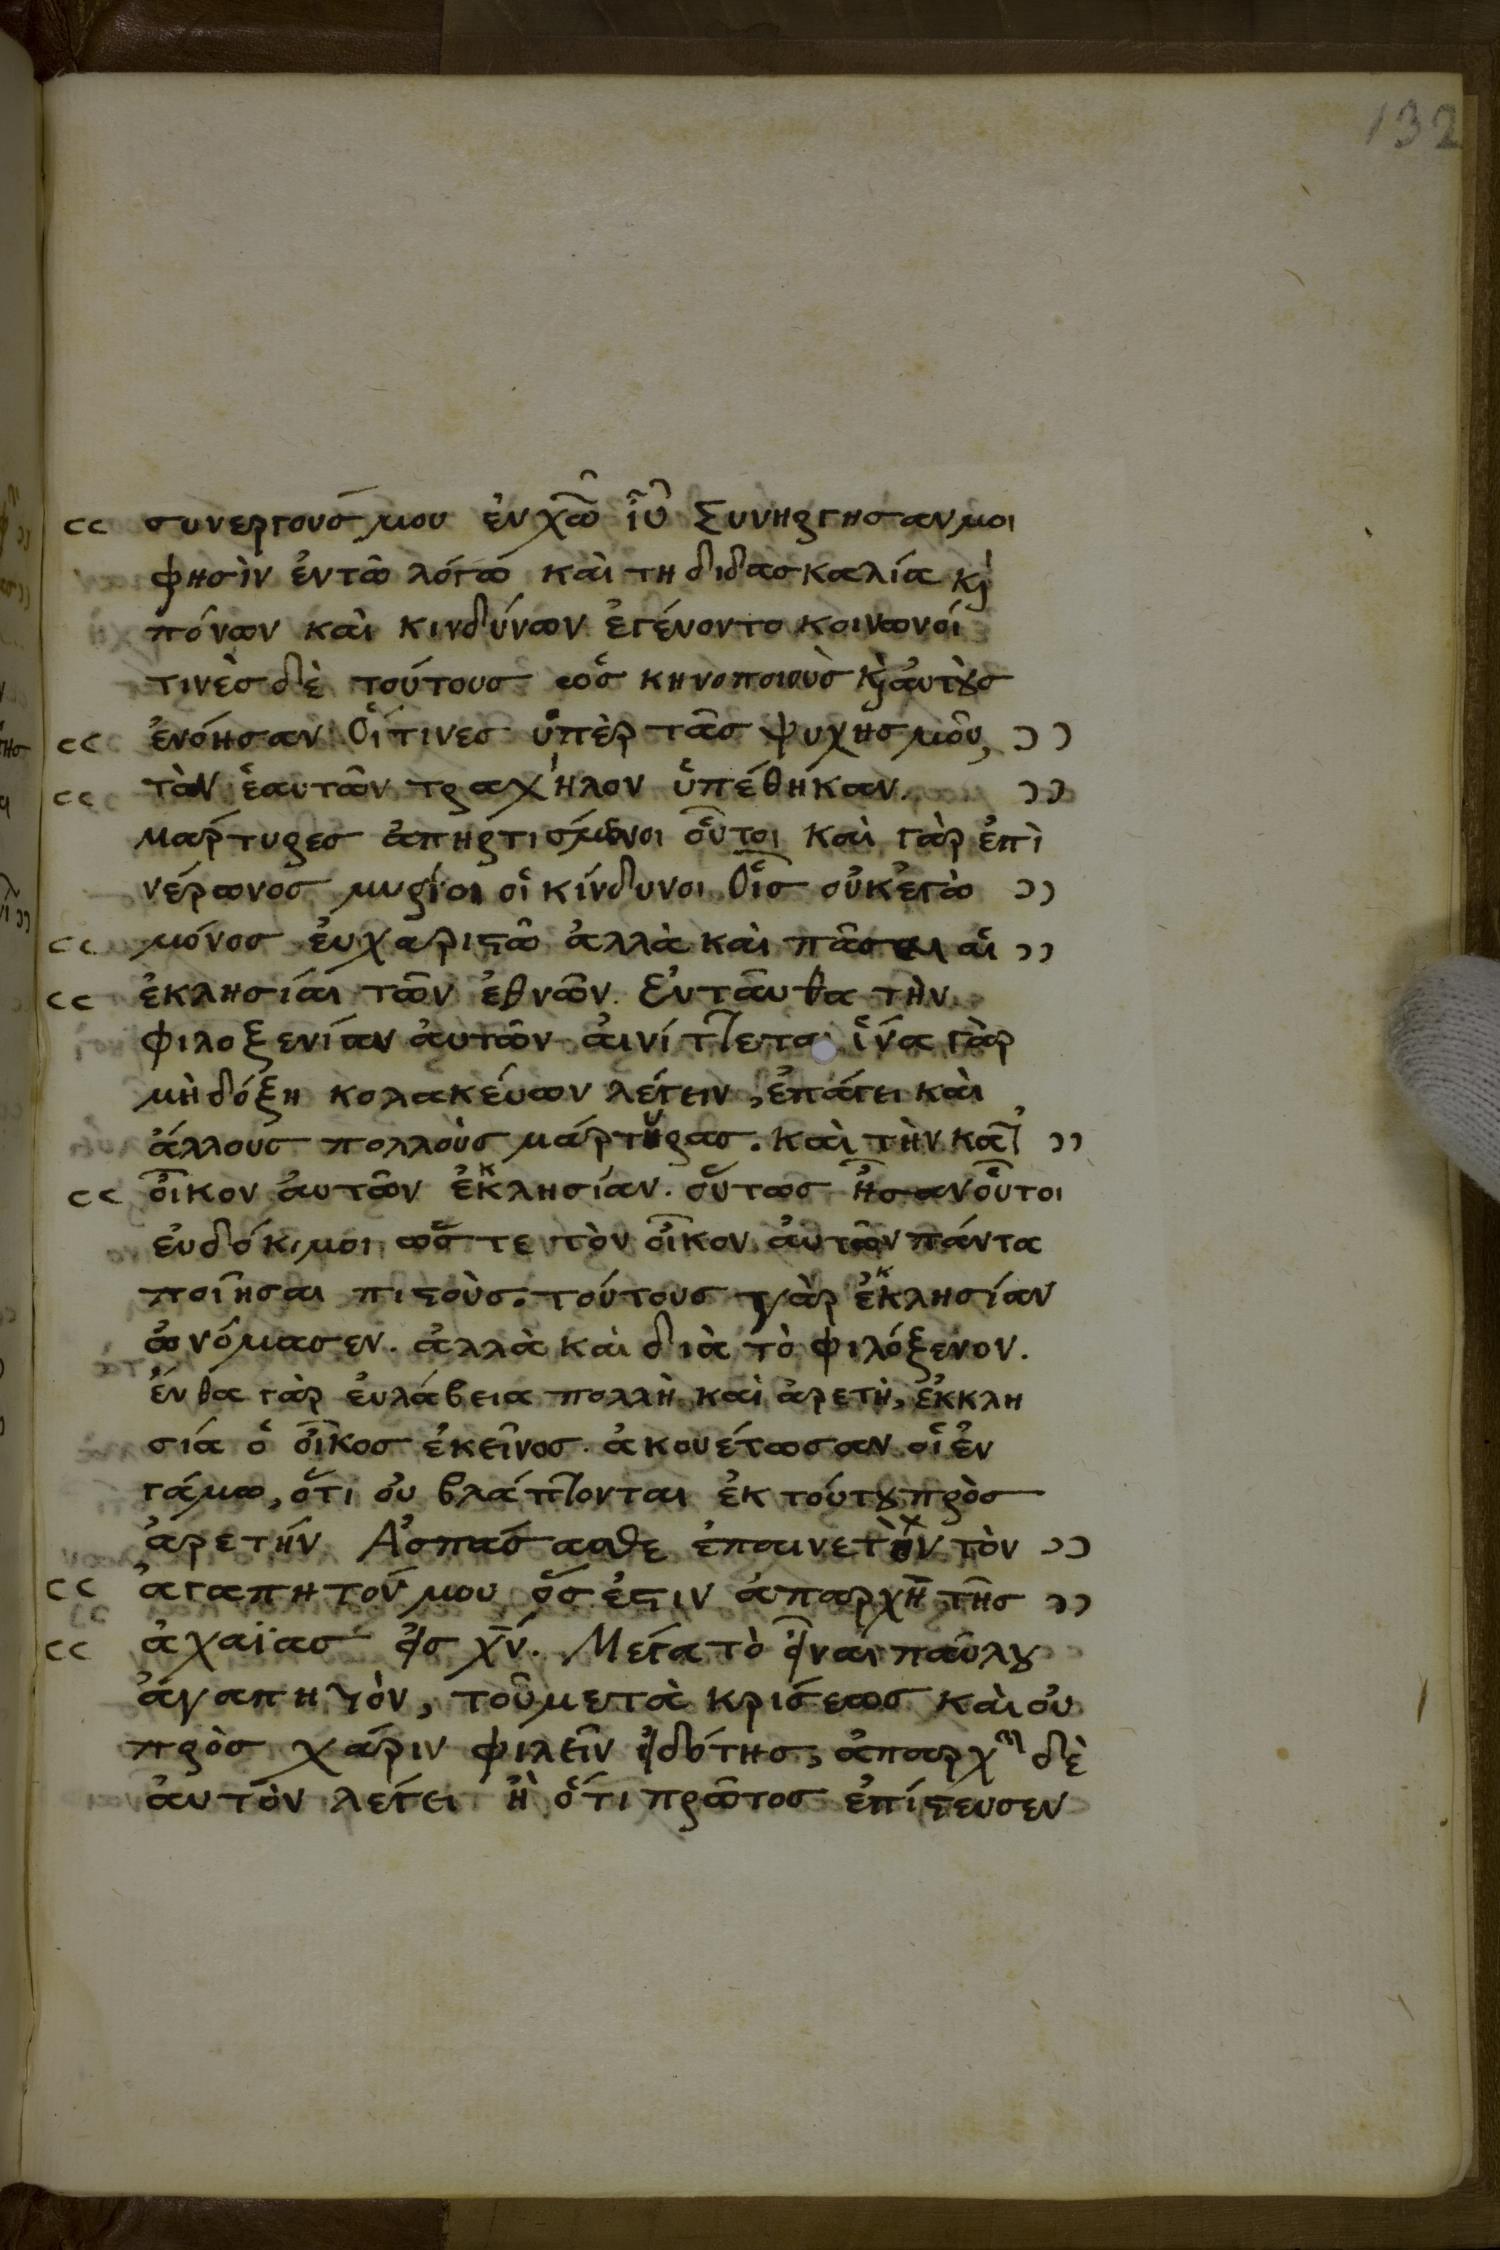 132
συνεργούς μου ἐν χω̑ ἰῦ Συνηργησαν μοι
φησὶν ἐν τῶ λόγω καὶ τη διδασκαλία κ̀
πόνων καὶ κινδύνων ἐγένοντο κοινωνοί
τινὲς δὲ τούτους ὡς κηνοποιοὺς κ̀ ἀυτȣ̀ς
ἐνόησαν Οἵτινες ὑπὲρ τᾶς ψυχης μοῦ,
τὸν ἑαυτῶν τραχήλον ὑπέθηκαν.
μαρτυρες ἀπηρτισμένοι οὗτοι καὶ γὰρ ἐπὶ
νέρωνος μυρίοι οἱ κίνδυνοι Οἷς οὐκ ἐγὼ
μόνος ἐυχαριϛῶ ἀλλὰ καὶ πᾶσαι αἱ
ἐκλησίαι τῶν ἐθνῶν. Ἐντᾶυθα τὴν
φιλοξενίαν ἀυτῶν ἀινίττεται ἵνα γὰρ
μὴ δόξη κολακέυων λέγειν, ἐπάγει καὶ
ἀλλους πολλοὺς μάρτυρας. καὶ τὴν κατ'
οἶκον ἀυτῶν ἐκκλησίαν. οὕτως ἦσαν οὗτοι
ἐυδόκιμοι ὥστε τὸν οἶκον ἀυτῶν πάντα
ποιῆσαι πιϛοὺς. τούτους γὰρ ἐκκλησίαν
ὠνόμασεν. ἀλλὰ καὶ διὰ τὸ φιλόξενον.
ἔνθα γὰρ ἐυλάβεια πολλὴ καὶ ἀρετὴ, ἐκκλη
σία ὁ οἶκος ἐκεῖνος. ἀκουέτωσαν οἱ ἐν
γάμω, ὅτι ὀυ βλάπτονται ἐκ τούτȣ πρὸς
ἀρετήν Ἀσπάσασθε ἐπαινετὸν τὸν
ἀγαπητόν μου ὅς ἐϛιν ἀπαρχὴ τῆς
ἀχαϊας ἐις χν̄. Μέγα τὸ ἐῖναι παύλȣ
ἀγαπητὸν, τοῦ μετὰ κρίσεως καὶ ὀυ
πρὸς χάριν φιλεῖν ἐιδότης, ἀπαρχὴν δὲ
ἀυτὸν λέγει ἢ ὅτι πρῶτος ἐπίϛευσεν